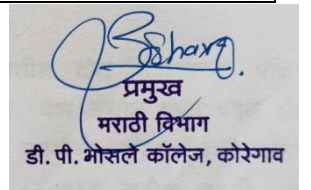 प्रमुख
मराठी विभाग
डी. पी. भोसले कॉलेज, कोरेगाव